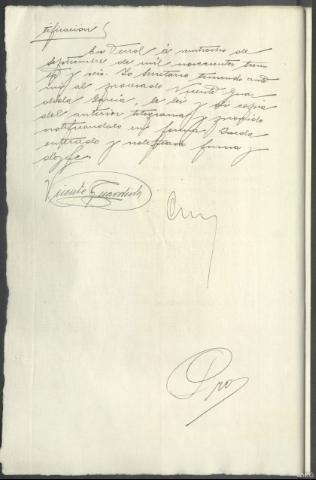 tificación
En Ferrol á veintiocho de
Septiembre de mil novecientos trein
ta y seis. Yo Secretario teniendo ante
mi al procesado Vicente Guar
García, le leí y dí copia
del anterior telegrama y proveido
notificandolo en forma. Queda
enterado y notificado firma y
doy fe.
Vicente